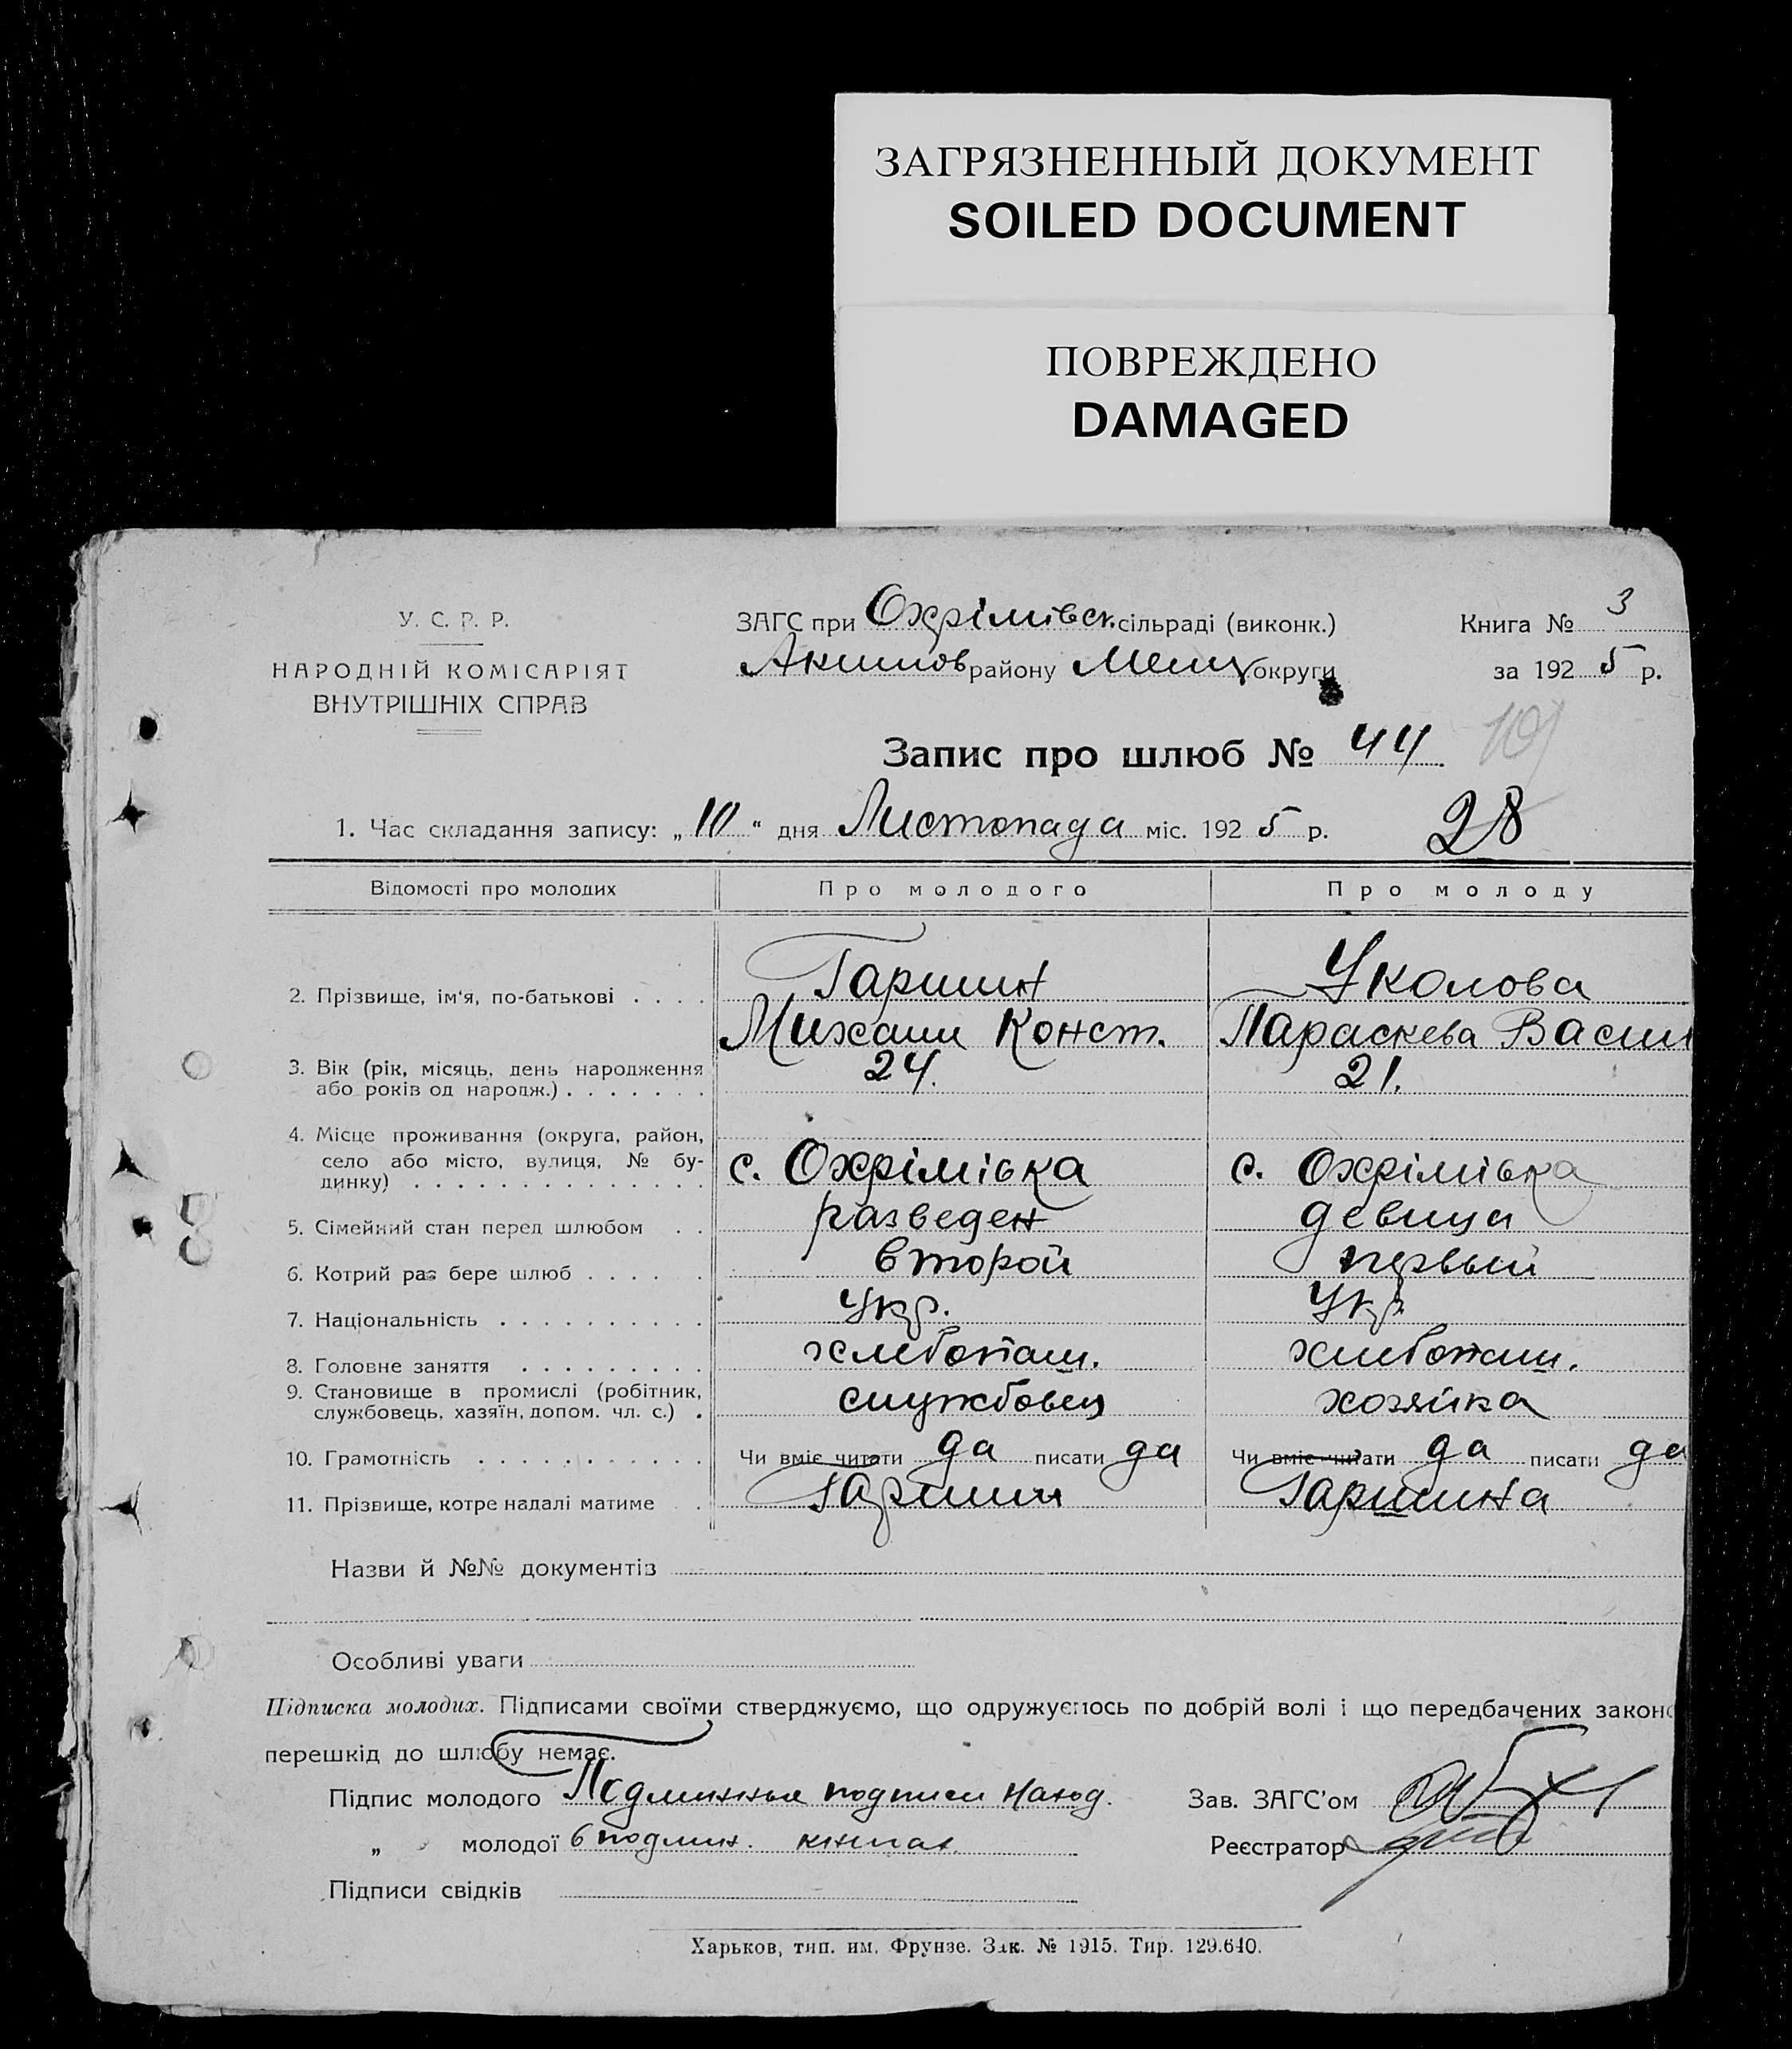 ЗАГРЯЗНЕННЫЙ ДОКУМЕНТ
SOILED DOCUMENT
ПОВРЕЖДЕНО
DAMAGED
У. С. Р. Р.
НАРОДНІЙ КОМІСАРІЯТ
ВНУТРІШНІХ СПРАВ
ЗАГС при Охрімівск. сільраді (виконк.)
Акимов району Меліт округи
Книга № 3
за 1925 р.
Запис про шлюб № 44
101
1. Час складання запису: „10“ дня Листопада міс. 1925 р.
28
Відомості про молодих Про молодого Про молоду
2. Прізвище, ім'я, по-батькові . . . . Гаршин Уколова
Михаил Конст. Параскева Васил
3. Вік (рік, місяць, день народження 24. 21.
або років од народж.) . . . . . . .
4. Місце проживання (округа, район,
село або місто, вулиця, № бу- с. Охріміька с. Охріміька
динку) . . . . . . . . . . . . . .
5. Сімейний стан перед шлюбом . . разведен девица
6. Котрий раз бере шлюб . . . . . . второй первый
7. Національність . . . . . . . . . . Укр. Укр
8. Головне заняття . . . . . . . . . хлебопаш. хлебопаш.
9. Становище в промислі (робітник, службовец хозяйка
службовець, хазяїн, допом. чл. с.) .
10. Грамотність . . . . . . . . . . . Чи вміє читати да писати да Чи вміє читати да писати да
11. Прізвище, котре надалі матиме . . Гаршин Гаршина
Назви й №№ документів
Особливі уваги
Підписка молодих. Підписами своїми стверджуємо, що одружуємось по добрій волі і що передбачених законо
перешкід до шлюбу немає.
Підпис молодого Подлинные подписи наход.
Зав. ЗАГС'ом
„ молодої в подлин. книгах.
Реєстратор
Підписи свідків
Харьков, тип. им. Фрунзе. Зак. № 1915. Тир. 129.640.